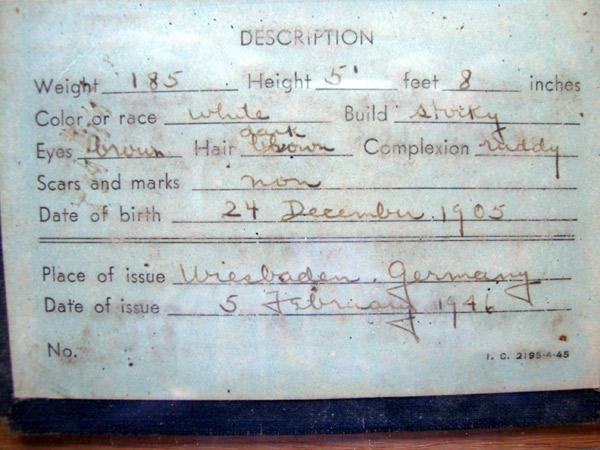 DESCRIPTION
Weight 185 Height 5' feet 8 inches
Color or race white Build stocky
Eyes brown Hair dark brown Complexion ruddy
Scars and marks non
Date of birth 24 December 1905
Place of issue Wiesbaden, Germany
Date of issue 5 February 1946
No.
I. C. 2195-4-45